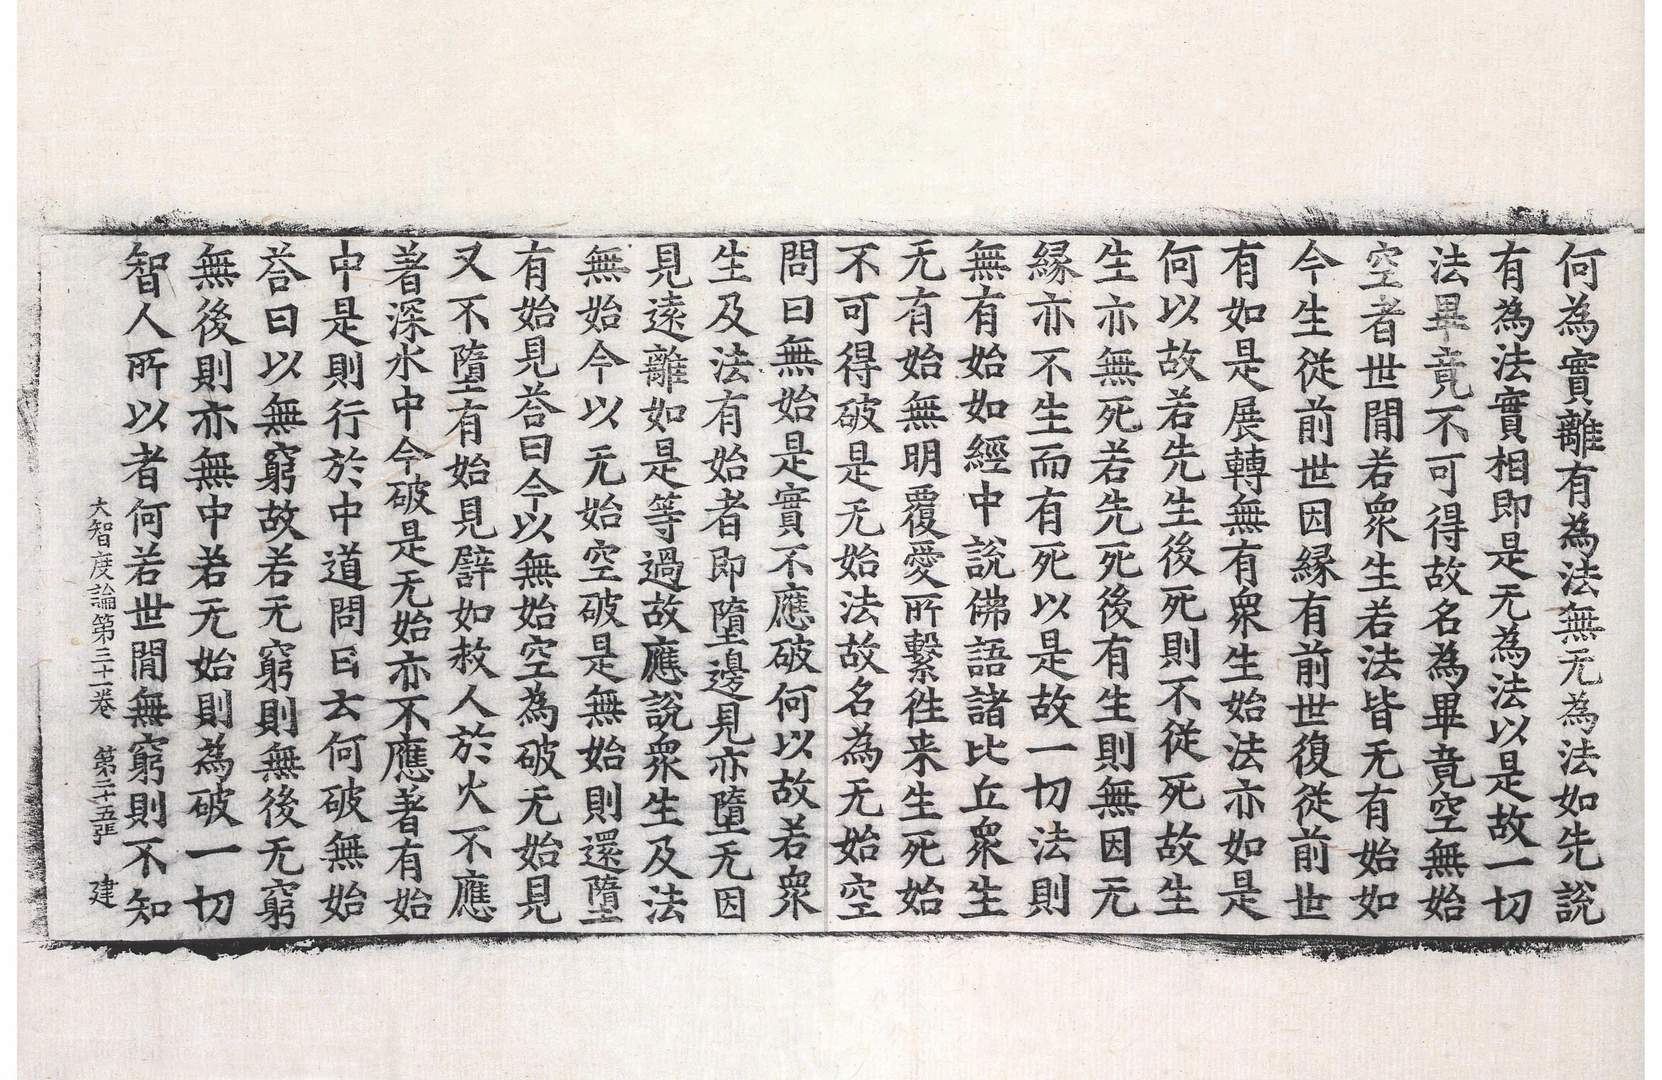 何為實離有為法無无為法如先說
有為法實相即是无為法以是故一切
法畢竟不可得故名為畢竟空無始
空者世閒若衆生若法皆无有始如
今生従前世因縁有前世復従前世
有如是展轉無有衆生始法亦如是
何以故若先生後死則不従死故生
生亦無死若先死後有生則無因无
縁亦不生而有死以是故一切法則
無有始如經中說佛語諸比丘衆生
无有始無明覆愛所繫徃来生死始
不可得破是无始法故名為无始空
問曰無始是實不應破何以故若衆
生及法有始者即墮邊見亦墮无因
見遠離如是等過故應說衆生及法
無始今以无始空破是無始則還墮
有始見荅曰今以無始空為破无始見
又不墮有始見譬如救人於火不應
著深水中今破是无始亦不應著有始
中是則行於中道問曰云何破無始
荅曰以無窮故若无窮則無後无窮
無後則亦無中若无始則為破一切
智人所以者何若世閒無窮則不知
大智度論第三十一卷 第二十五張 建